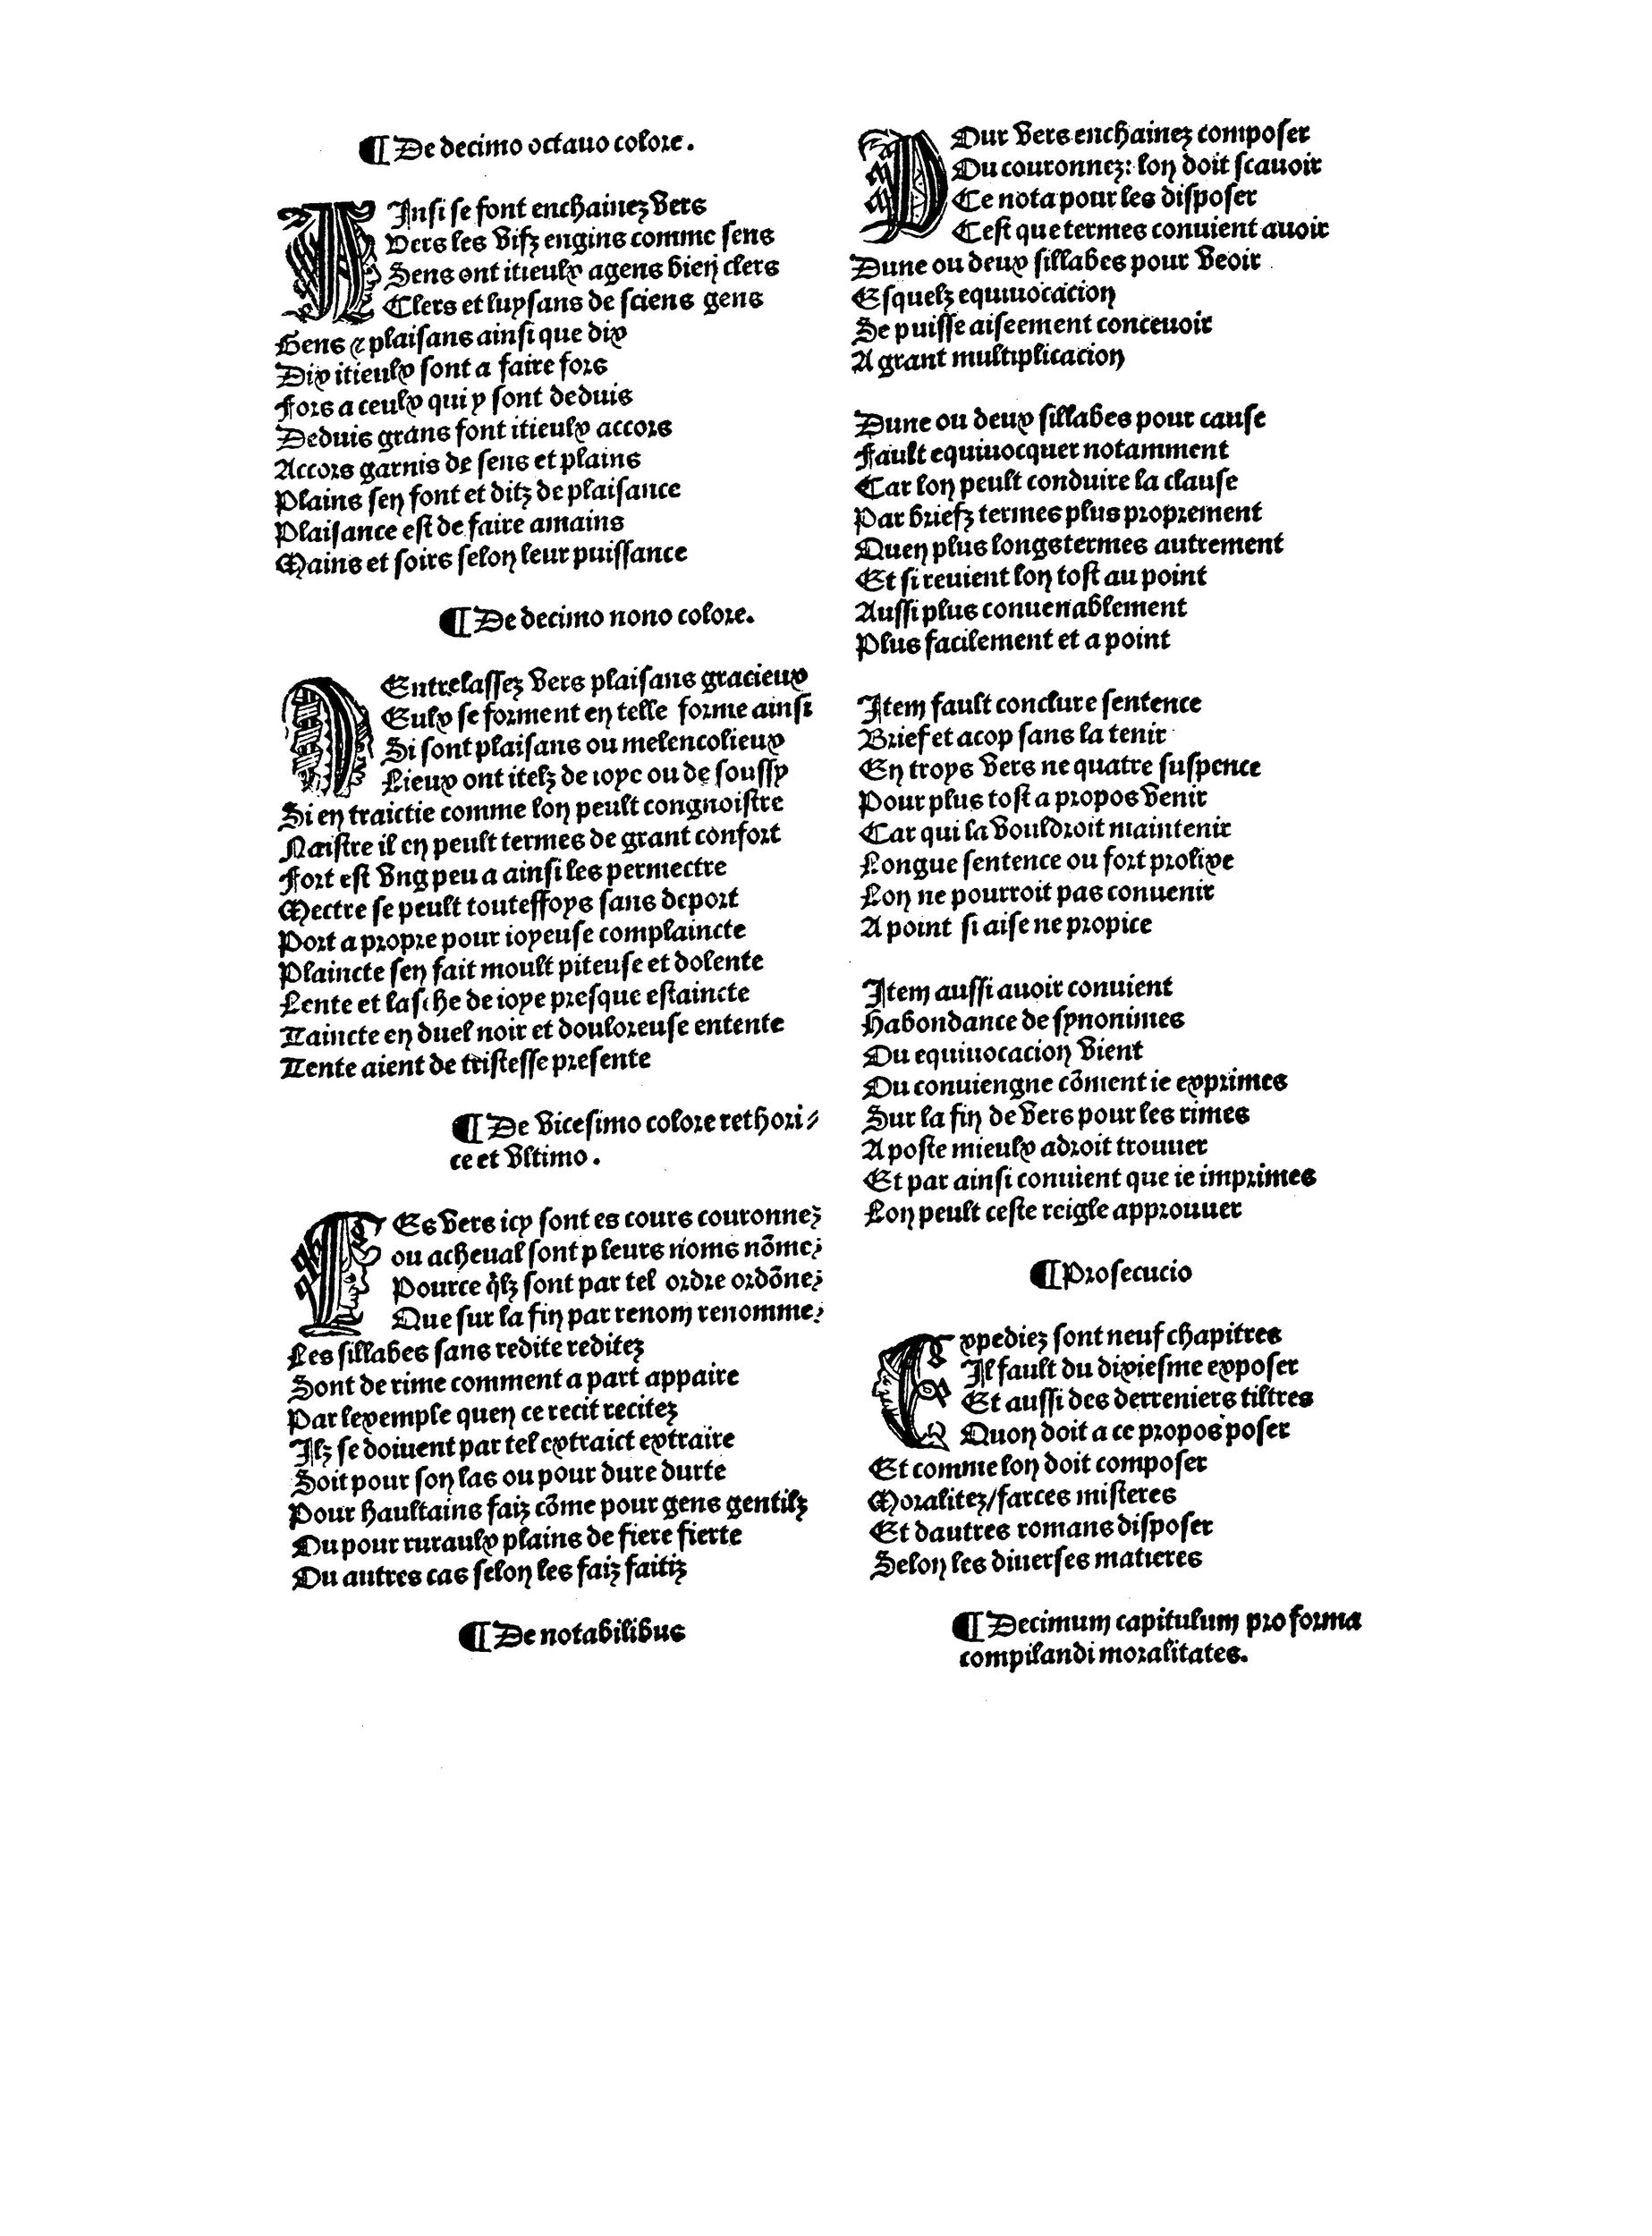 ¶ De decimo octauo colore.
AInsi se font enchainez vers
Vers les vifz engins comme sens
Sens ont itieulx agens bien clers
Clers et luysans de sciens gens
Gens & plaisans ainsi que dix
Dix itieulx sont a faire fors
Fors a ceulx qui y sont deduis
Deduis grans font itieulx accors
Accors garnis de sens et plains
Plains sen font et ditz de plaisance
Plaisance est de faire amains
Mains et soirs selon leur puissance
¶ De decimo nono colore.
DEntrelassez vers plaisans gracieux
Eulx se forment en telle forme ainsi
Si sont plaisans ou melencolieux
Lieux ont itelz de ioye ou de soussy
Si en traictie comme lon peult congnoistre
Naistre il en peult termes de grant confort
Fort est vng peu a ainsi les permectre
Mectre se peult touteffoys sans deport
Port a propre pour ioyeuse complaincte
Plaincte sen fait moult piteuse et dolente
Lente et lasche de ioye presque estaincte
Taincte en duel noir et douloreuse entente
Tente aient de tristesse presente
¶ De vicesimo colore rethori⸗
ce et vltimo.
LEs vers icy sont es cours couronnez
ou acheual sont p leurs noms nõmez
Pource q̃lz sont par tel ordre ordõnez
Que sur la fin par renom renommez
Les sillabes sans redite reditez
Sont de rime comment a part appaire
Par lexemple quen ce recit recitez
Ilz se doiuent par tel extraict extraire
Soit pour son las ou pour dure durte
Pour haultains faiz cõme pour gens gentilz
Ou pour ruraulx plains de fiere fierte
Ou autres cas selon les faiz faitiz
¶ De notabilibus
POur vers enchainez composer
Ou couronnez: lon doit scauoir
Ce nota pour les disposer
Cest que termes conuient auoir
Dune ou deux sillabes pour veoir
Esquelz equiuocacion
Se puisse aiseement conceuoir
A grant multiplicacion
Dune ou deux sillabes pour cause
Fault equiuocquer notamment
Car lon peult conduire la clause
Par briefz termes plus proprement
Quen plus longs termes autrement
Et si reuient lon tost au point
Aussi plus conuenablement
Plus facilement et a point
Item fault conclure sentence
Brief et acop sans la tenir
En troys vers ne quatre suspence
Pour plus tost a propos venir
Car qui la vouldroit maintenir
Longue sentence ou fort prolixe
Lon ne pourroit pas conuenir
A point si aise ne propice
Item aussi auoir conuient
Habondance de synonimes
Ou equiuocacion vient
Ou conuiengne cõment ie exprimes
Sur la fin de vers pour les rimes
A poste mieulx adroit trouuer
Et par ainsi conuient que ie imprimes
Lon peult ceste reigle approuuer
¶ Prosecucio
Expediez sont neuf chapitres
Il fault du dixiesme exposer
Et aussi des derreniers tiltres
Quon doit a ce propos poser
Et comme lon doit composer
Moralitez/farces misteres
Et dautres romans disposer
Selon les diuerses matieres
¶ Decimum capitulum pro forma
compilandi moralitates.